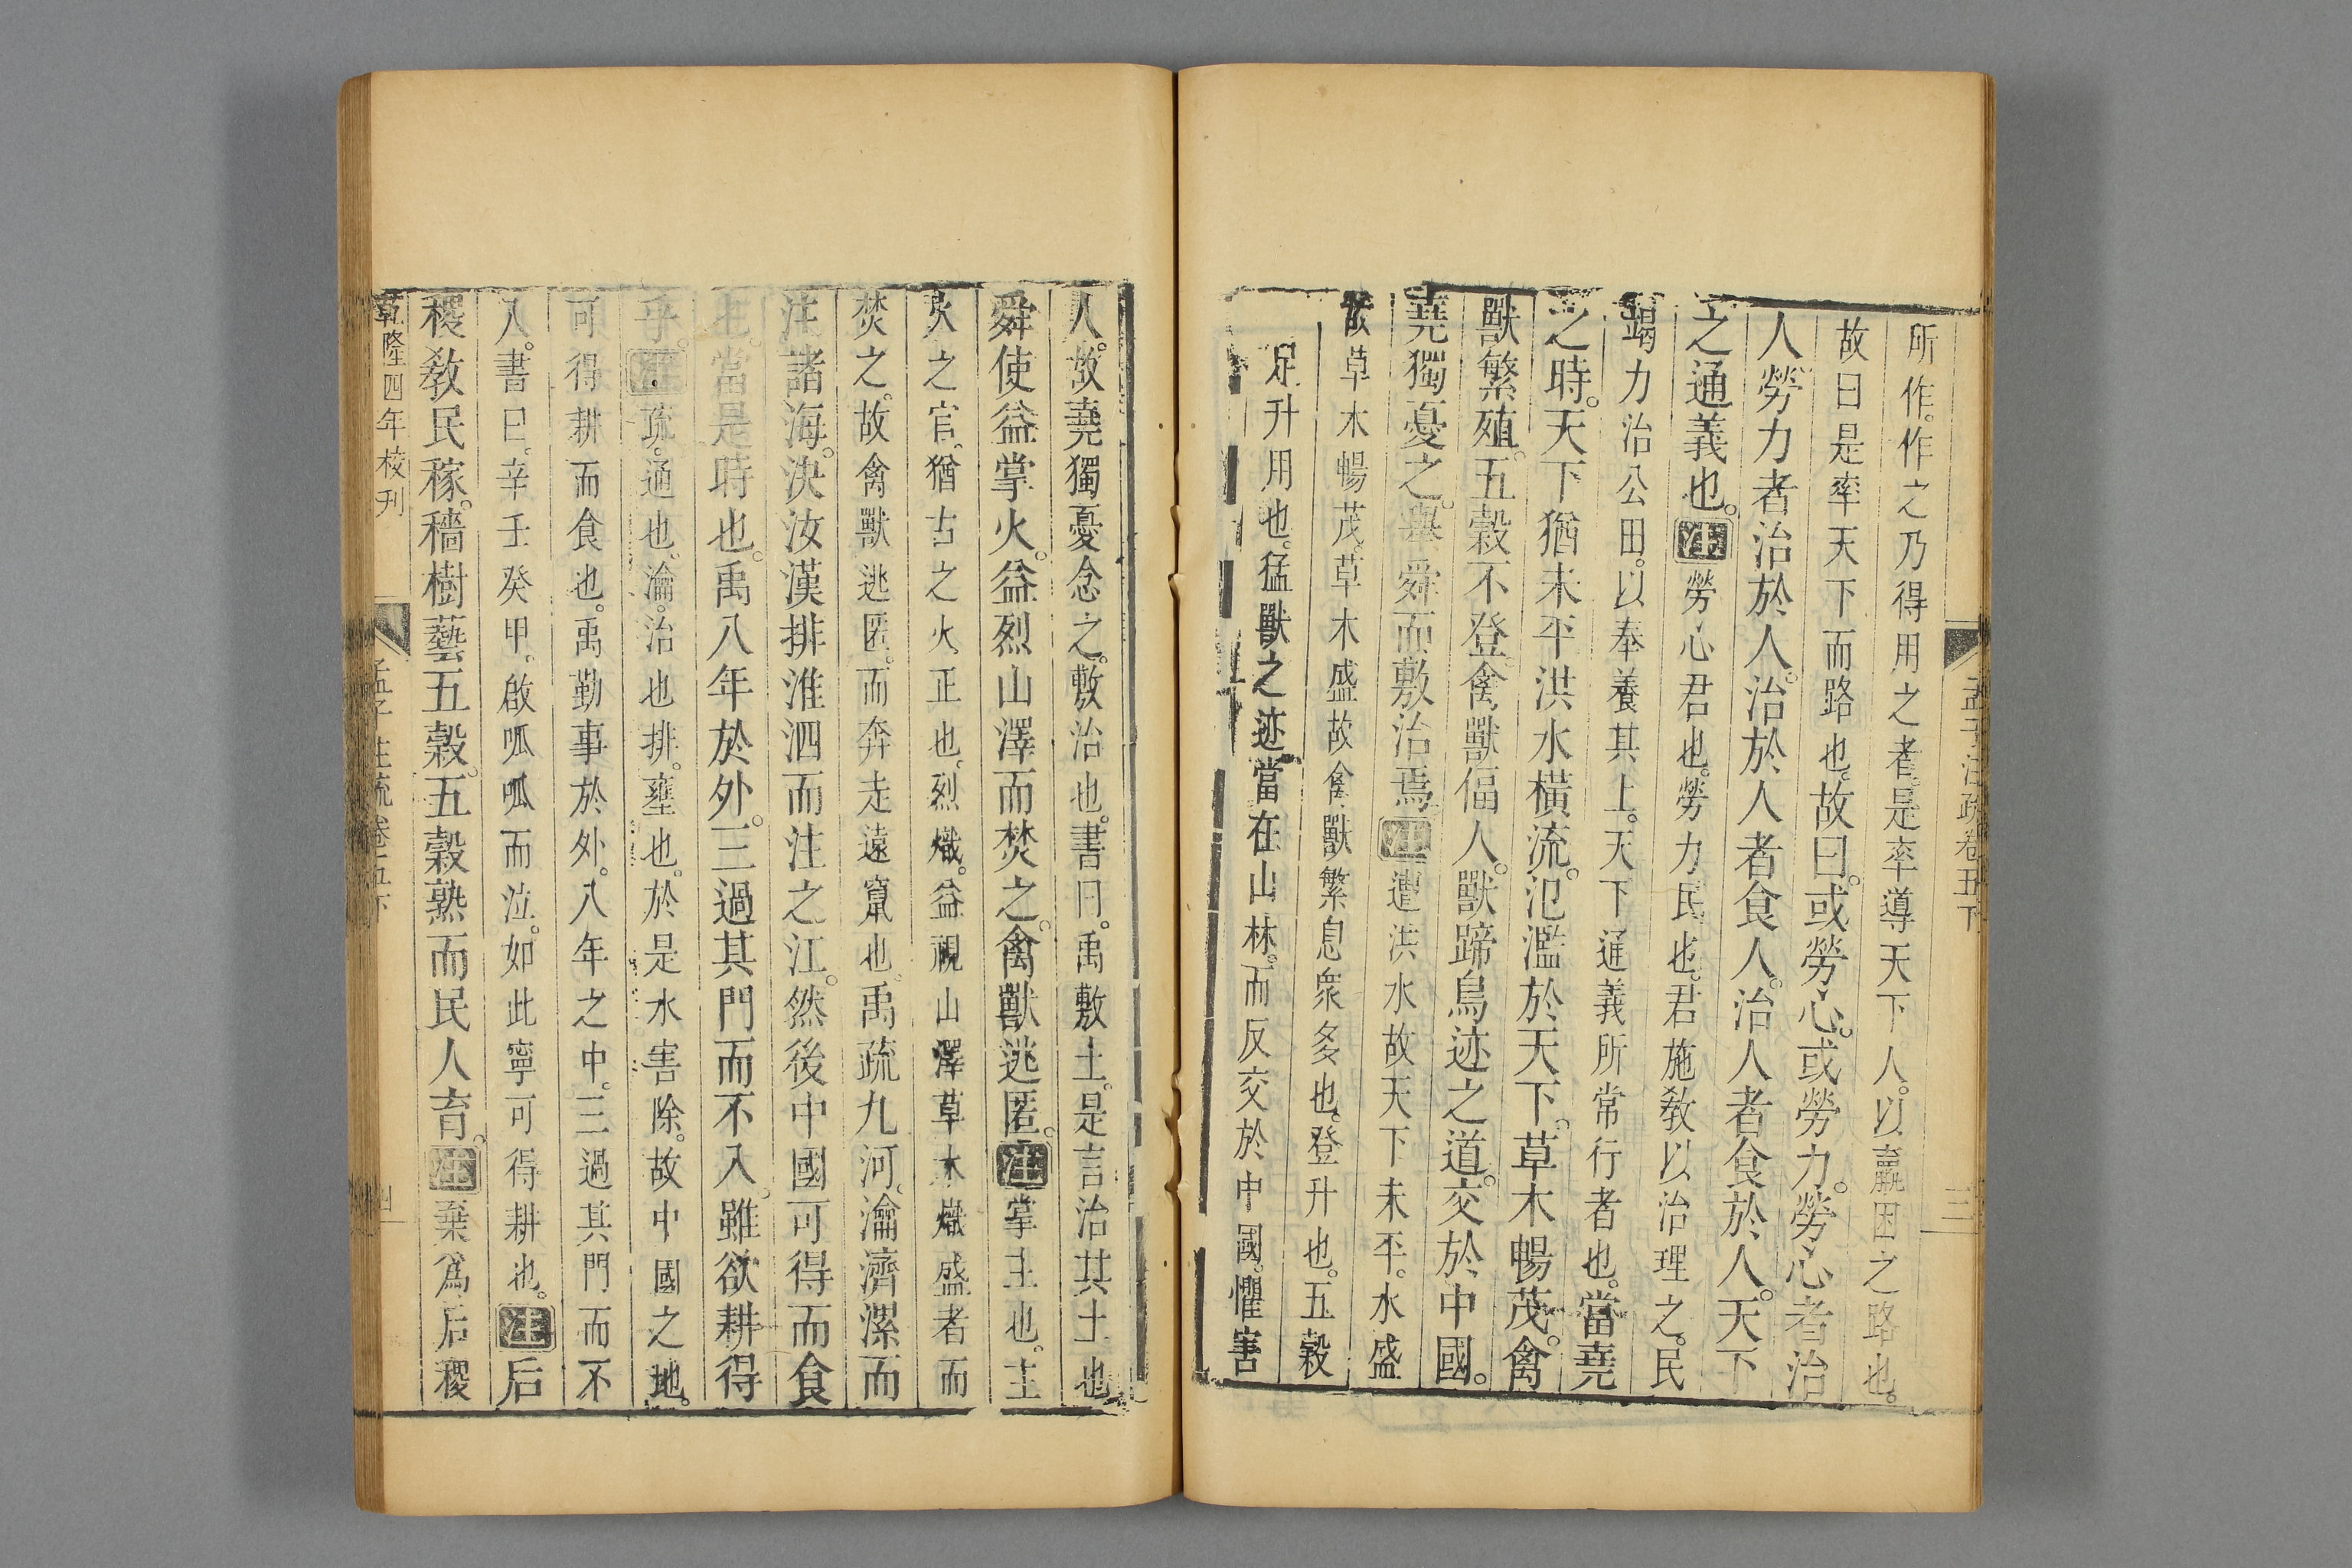 孟子注疏卷五下
三
所作。作之乃得用之者。是率導天下人。以羸困之路也。
故曰是率天下而路也。故曰。或勞心。或勞力。勞心者治
人。勞力者治於人。治於人者食人。治人者食於人。天下
之通義也。注勞心君也。勞力民也。君施敎以治理之。民
竭力治公田。以奉養其上。天下通義所常行者也。當堯
之時。天下猶未平洪水橫流。氾濫於天下。草木暢茂。禽
獸繁殖。五穀不登。禽獸偪人。獸蹄鳥迹之道。交於中國。
堯獨憂之。舉舜而敷治焉。注遭洪水故天下未平。水盛
故草木暢茂。草木盛故禽獸繁息衆多也。登升也。五穀
足升用也。猛獸之迹當在山林。而反交於中國。懼害
人。故堯獨憂念之。敷治也。書曰。禹敷土。是言治其土也。
舜使益掌火。益烈山澤而焚之。禽獸逃匿。注掌主也。主
火之官。猶古之火正也。烈熾。益視山澤草木熾盛者而
焚之。故禽獸逃匿。而奔走遠竄也。禹疏九河。瀹濟漯而
注諸海。決汝漢排淮泗而注之江。然後中國可得而食
也。當是時也。禹八年於外。三過其門而不入。雖欲耕得
乎。注疏。通也。瀹。治也。排。壅也。於是水害除。故中國之地。
可得耕而食也。禹勤事於外。八年之中。三過其門而不
入。書曰。辛壬癸甲。啟呱呱而泣。如此寧可得耕也。注后
稷敎民稼。穡樹藝五穀。五穀熟而民人育。注棄爲后稷
乾隆四年校刊
孟子注疏卷五下
四